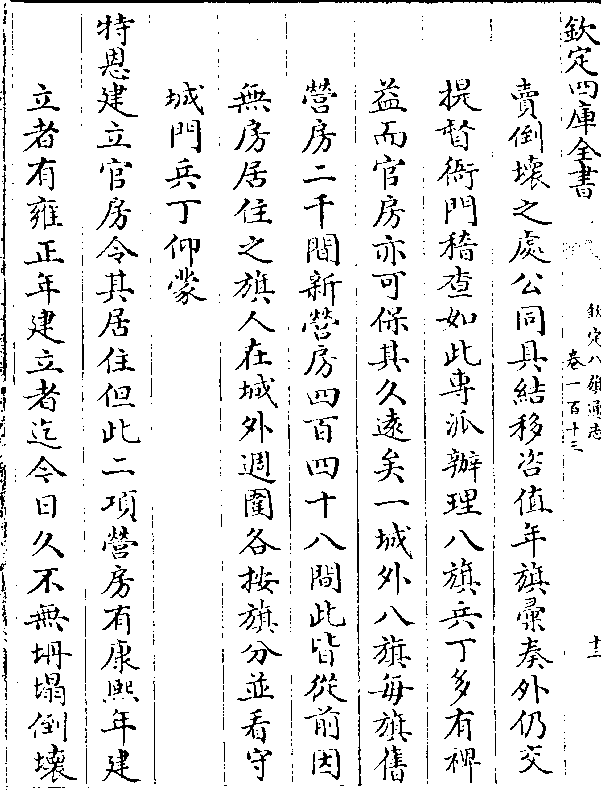 欽定四庫全書
欽定八旗通志
卷一百十三
十二
賣倒壞之處公同具結移咨值年旗彙奏外仍交
提督衙門稽查如此專派辦理八旗兵丁多有裨
益而官房亦可保其久遠矣一城外八旗每旗舊
營房二千間新營房四百四十八間此皆從前因
無房居住之旗人在城外週圍各按旗分並看守
城門兵丁仰蒙
特恩建立官房令其居住但此二項營房有康熙年建
立者有雍正年建立者迄今日久不無坍塌倒壞